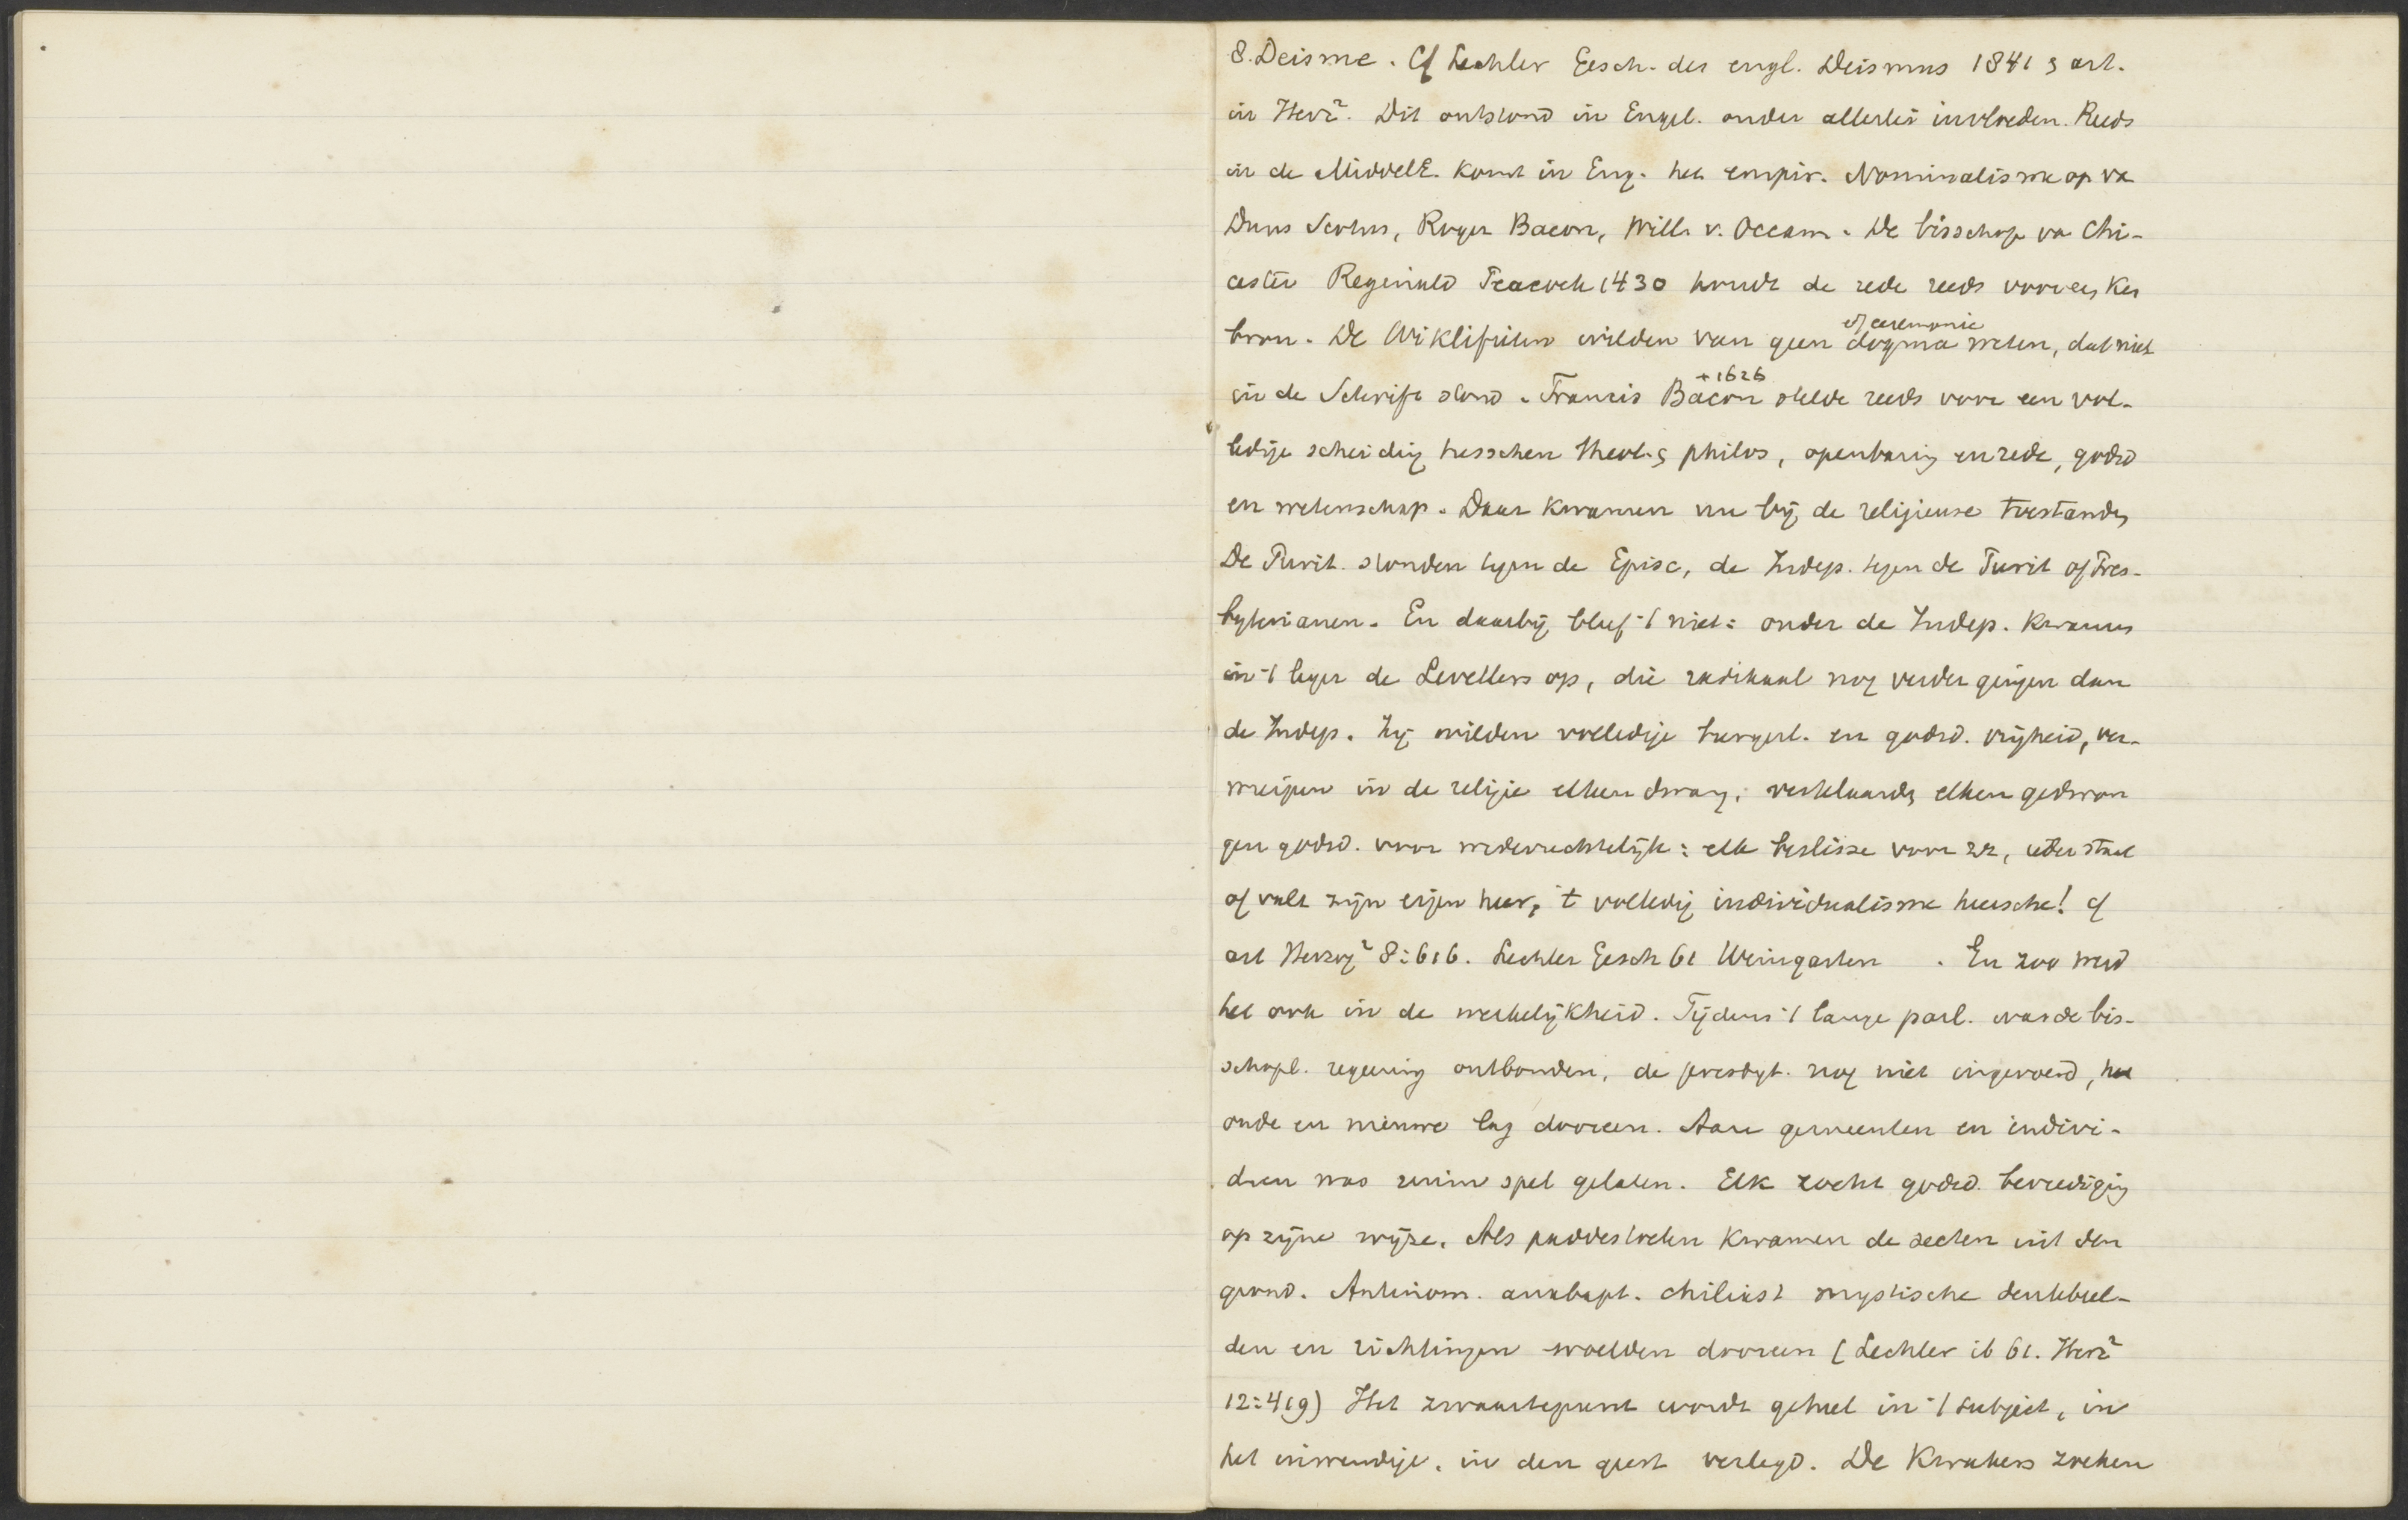 8. Deisme. Cf Lechler Gesch. des engl. Deismus 1841 & art.
in Herz². Dit ontstond in Engel. onder allerlei invloeden. Reeds
in de MiddelE. komt in Eng. het empir. Nominalisme op va
Duns Scotus, Roger Bacon, Will. v. Occam. De bisschop va Chi-
cester Reginald Peacock 1430 houdt de rede reeds voor een ken
bron. De Wiklifieten wilden van geen dogma of ceremonie weten, dat niet
in de Schrift stond. Francis Bacon +1626 stelde reeds voor een vol-
ledige scheiding tusschen theol. & philos, openbaring en rede, godsd
en wetenschap. Daar kwamen nu bij de religieuse toestanden
De Purit. stonden tegen de Episc, de Indep. tegen de Purit of Pres-
byterianen. En daarbij bleef 't niet: onder de Indep. kwamen
in 't leger de Levellers op, die radikaal nog verder gingen dan
de Indep. Zij wilden volledige burgerl. en godsd. vrijheid, ver-
wierpen in de religie elken dwang, verklaarden elken gedwon
gen godsd. voor wederrechtelijk: elk beslisse voor zz, ieder staat
of valt zijn eigen heer, 't volledig individualisme heerschte! cf
art Herzog² 8:616. Lechler Gesch 61 Weingarten . En zoo werd
het ook in de werkelijkheid. Tijdens 't lange parl. was de bis-
schopl. regeering ontbonden, de presbyt. nog niet ingevoerd, het
oude en nieuwe lag dooreen. Aan gemeenten en indivi-
duen was ruim spel gelaten. Elk zocht godsd. bevrediging
op zijne wijze. Als paddestoelen kwamen de secten uit den
grond. Antinom. anabapt. chiliast mystische denkbeel-
den en richtingen woelden dooreen (Lechler ib 61. Herz²
12:419) Het zwaartepunt wordt geheel in 't subject, in
het inwendige, in den geest verlegd. De Kwakers zoeken